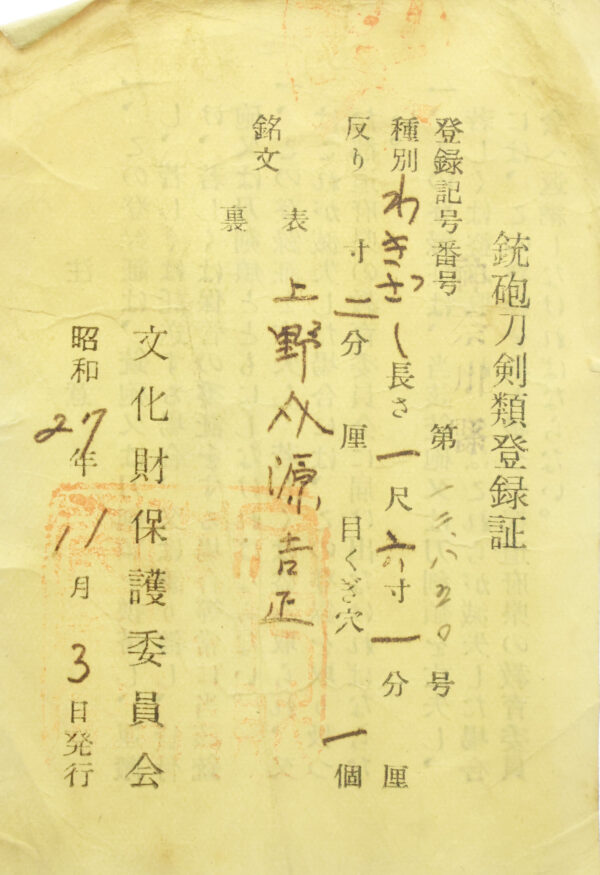 銃砲刀剣類登録証
登録記号番号 第 号
種別 わきざし 長さ 一尺六寸一分 厘
反り 寸二分 厘 目くぎ穴 一個
銘文 表 上野介源吉正
裏
文化財保護委員会
昭和27年11月3日発行